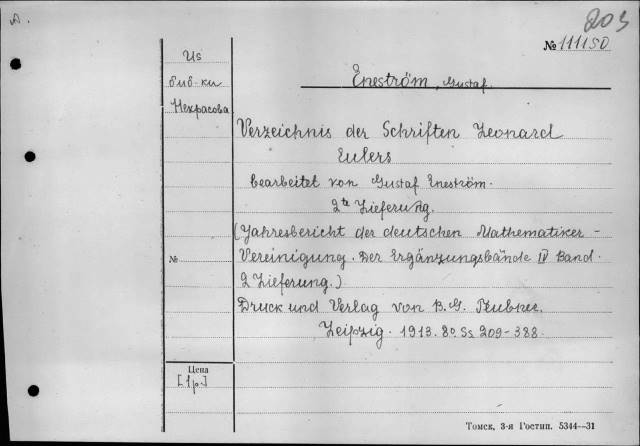 A.
203
№ 111150
Из
биб-ки
Некрасова
Eneström, Gustaf.
Verzeichnis der Schriften Leonard
Eulers
bearbeitet von Gustaf Eneström.
2te Lieferung.
(Jahresbericht der deutschen Mathematiker-
Vereinigung. Der Ergänzungsbände IV Band.
2 Lieferung.)
Druck und Verlag von B. G. Teubner.
Leipzig. 1913. 8o. Ss 209-388.
№
Цена
[1 р.]
Томск, 3-я Гостип. 5344—31